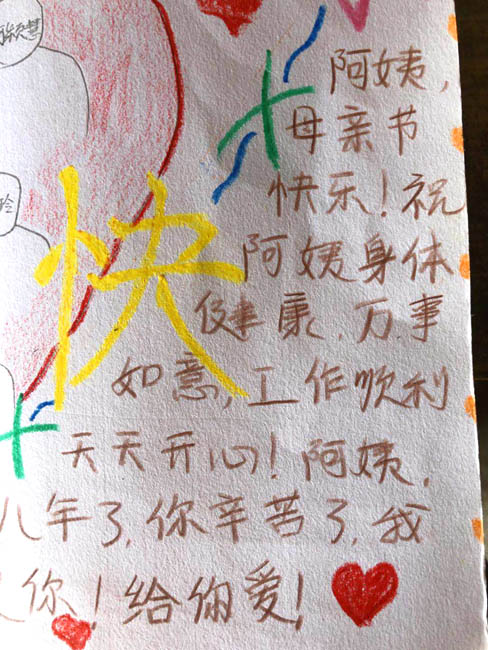 阿姨,
母亲节
快乐!祝
快
阿姨身体
健康,万事
如意,工作顺利
天天开心!阿姨,
八年了,你辛苦了,我
你!给你爱!